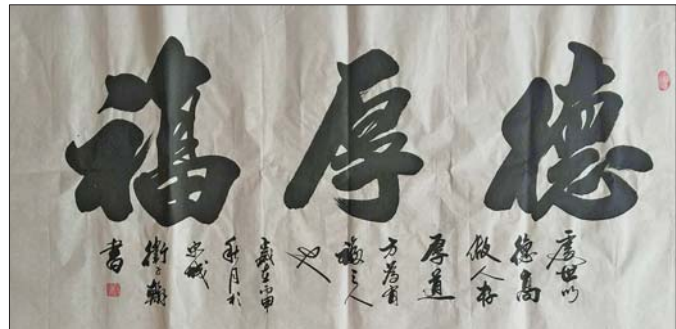 德厚福
處世以
德高
做人存
厚道
方為有
福之人
也
歲在丙申
秋月於
書